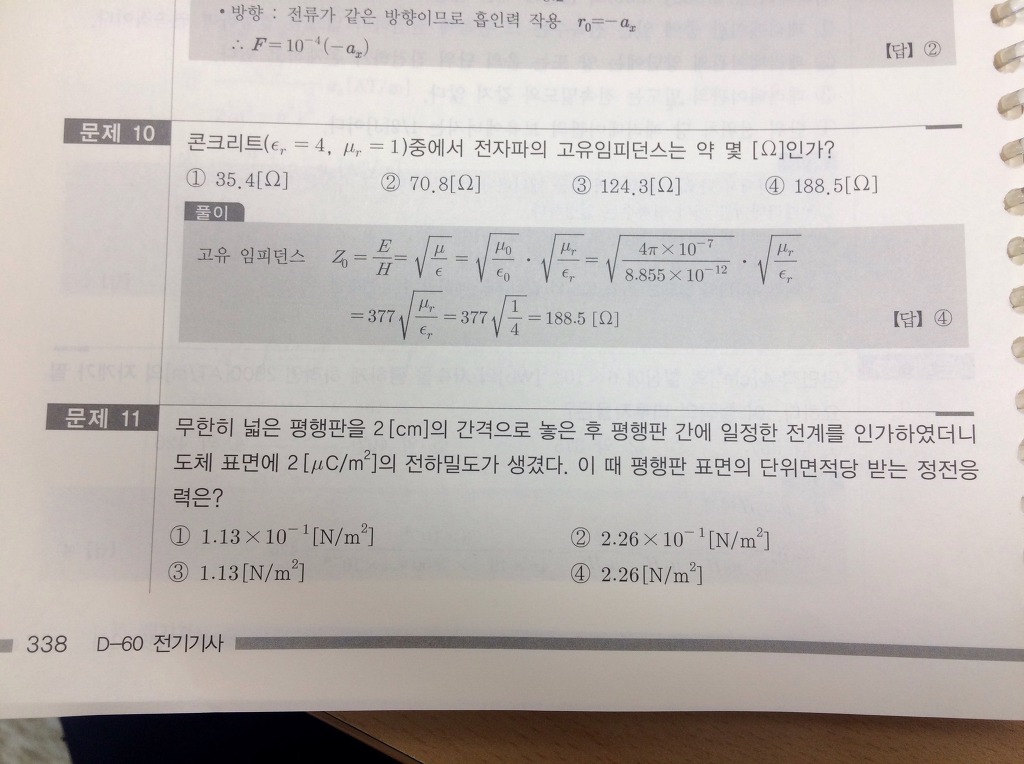 • 방향 : 전류가 같은 방향이므로 흡인력 작용 r₀=−aₓ
∴ F=10⁻⁴(−aₓ)
【답】 ②
문제 10
콘크리트(ϵᵣ = 4, μᵣ = 1)중에서 전자파의 고유임피던스는 약 몇 [Ω]인가?
① 35.4[Ω] ② 70.8[Ω] ③ 124.3[Ω] ④ 188.5[Ω]
풀이
고유 임피던스 Z₀ = E/H = √(μ/ϵ) = √(μ₀/ϵ₀) · √(μᵣ/ϵᵣ) = √(4π×10⁻⁷/8.855×10⁻¹²) · √(μᵣ/ϵᵣ)
= 377√(μᵣ/ϵᵣ) = 377√(1/4) = 188.5 [Ω]
【답】 ④
문제 11
무한히 넓은 평행판을 2[cm]의 간격으로 놓은 후 평행판 간에 일정한 전계를 인가하였더니
도체 표면에 2[μC/m²]의 전하밀도가 생겼다. 이 때 평행판 표면의 단위면적당 받는 정전응
력은?
① 1.13×10⁻¹[N/m²] ② 2.26×10⁻¹[N/m²]
③ 1.13[N/m²] ④ 2.26[N/m²]
338 D-60 전기기사